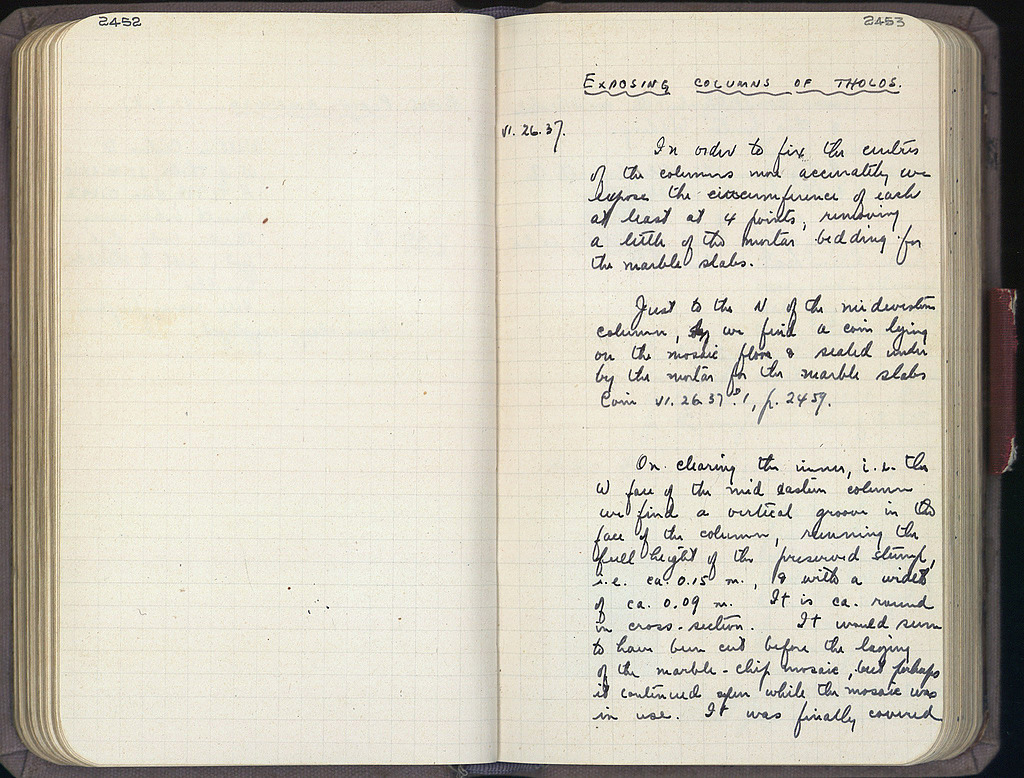 2452
2453
EXPOSING COLUMNS OF THOLOS.
VI.26.37.
In order to fix the centres
of the columns more accurately we
expose the circumference of each
at least at 4 points, removing
a little of the mortar bedding for
the marble slabs.
Just to the N of the midwestern
column, we find a coin lying
on the mosaic floor & sealed under
by the mortar for the marble slabs
Coin VI.26.37 : 1, p. 2459.
On clearing the inner, i.e. the
W face of the mid eastern column
we find a vertical groove in the
face of the column, running the
full height of the preserved stump,
i.e. ca. 0.15 m., & with a width
of ca. 0.09 m. It is ca. round
in cross-section. It would seem
to have been cut before the laying
of the marble-chip mosaic, but perhaps
it continued open while the mosaic was
in use. It was finally covered